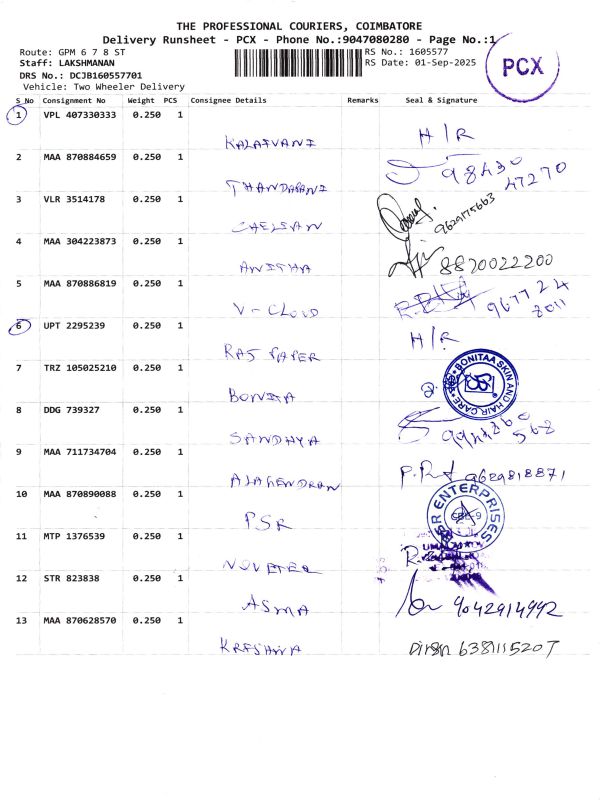 THE PROFESSIONAL COURIERS, COIMBATORE
Delivery Runsheet - PCX - Phone No.:9047080280 - Page No.:1
Route: GPM 6 7 8 ST RS No.: 1605577
Staff: LAKSHMANAN RS Date: 01-Sep-2025
DRS No.: DCJB160557701
PCX
Vehicle: Two Wheeler Delivery
S_No Consignment No Weight PCS Consignee Details Remarks Seal & Signature
1 VPL 407330333 0.250 1
KALAIVANI H/R
2 MAA 870884659 0.250 1
THANDAPANI 98430 47270
3 VLR 3514178 0.250 1
CHELSAN 9629175663
4 MAA 304223873 0.250 1
ANITHA 8870022200
5 MAA 870886819 0.250 1
V-CLOUD 96772 4 8011
6 UPT 2295239 0.250 1
RAJ PAPER H/R
7 TRZ 105025210 0.250 1
BONITA BONITAA SKIN AND HAIR CARE
8 DDG 739327 0.250 1
SANDHYA
9 MAA 711734704 0.250 1
ALAGENDRAN 9629818871
10 MAA 870890088 0.250 1
PSR PSR ENTERPRISES CBE-9
11 MTP 1376539 0.250 1
12 STR 823838 0.250 1
ASMA 9042914992
13 MAA 870628570 0.250 1
KRISHNA 6381115207